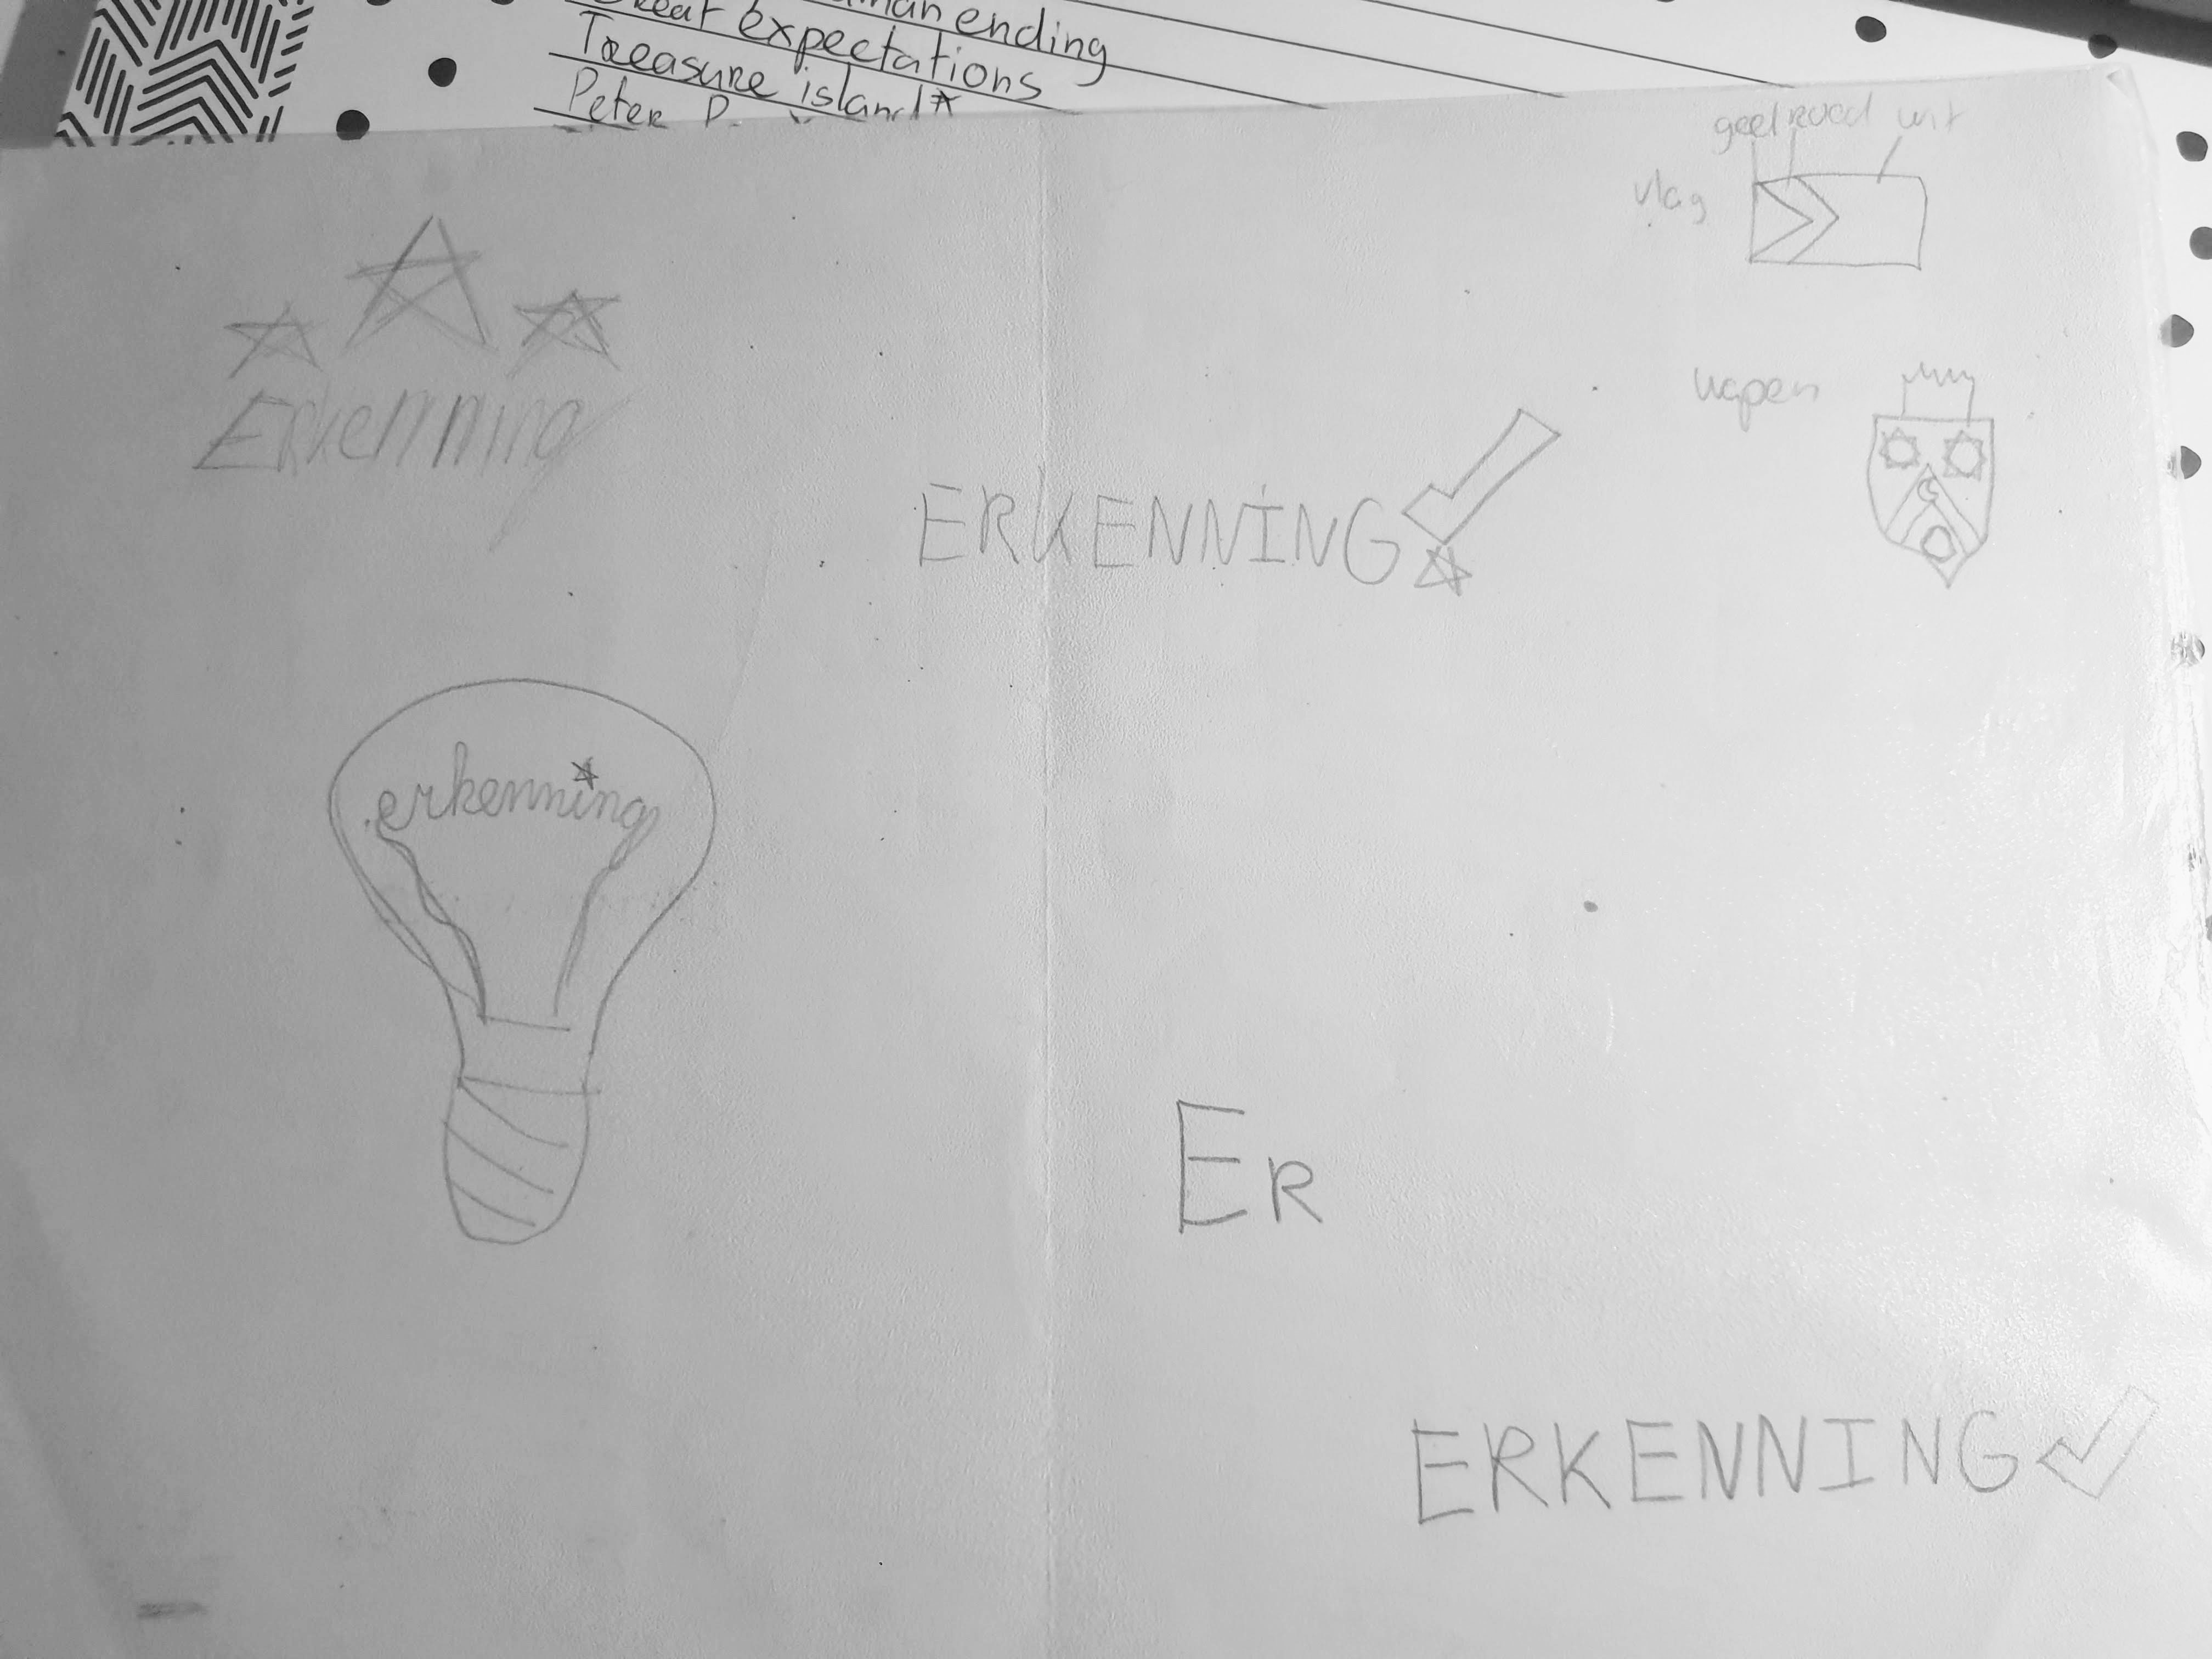 ending
expectations
Treasure island
Peter P.
geel rood wit
vlag
Erkenning
wapen
ERKENNING
erkenning
ER
ERKENNING